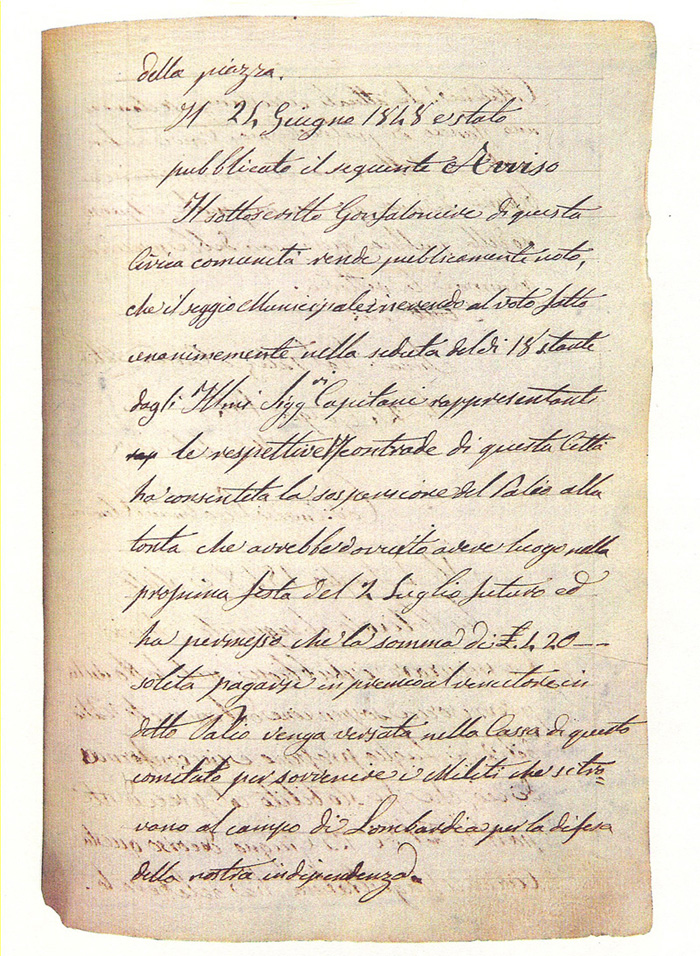 della piazza.
Il 24 Giugno 1848 è stato
pubblicato il seguente Avviso
Il sottoscritto Gonfaloniere di questa
Civica comunità rende publicamente noto,
che il seggio Municipale inerendo al voto fatto
unanimemente nella seduta del dì 18 stante
dagli Ill̃mi Sigg.ri Capitani rappresentanti
le respettive 17 contrade di questa Città
ha consentita la sospensione del Palio alla
tonda che avrebbe dovuto avere luogo nella
prossima festa del 2 Luglio futuro ed
ha permesso che la somma di £. 420 —
solita pagarsi in premio al vincitore in
detto Palio venga versata nella Cassa di questo
comitato per sovvenire i Militi che si tro=
vano al campo di Lombardia per la difesa
della nostra independenza.